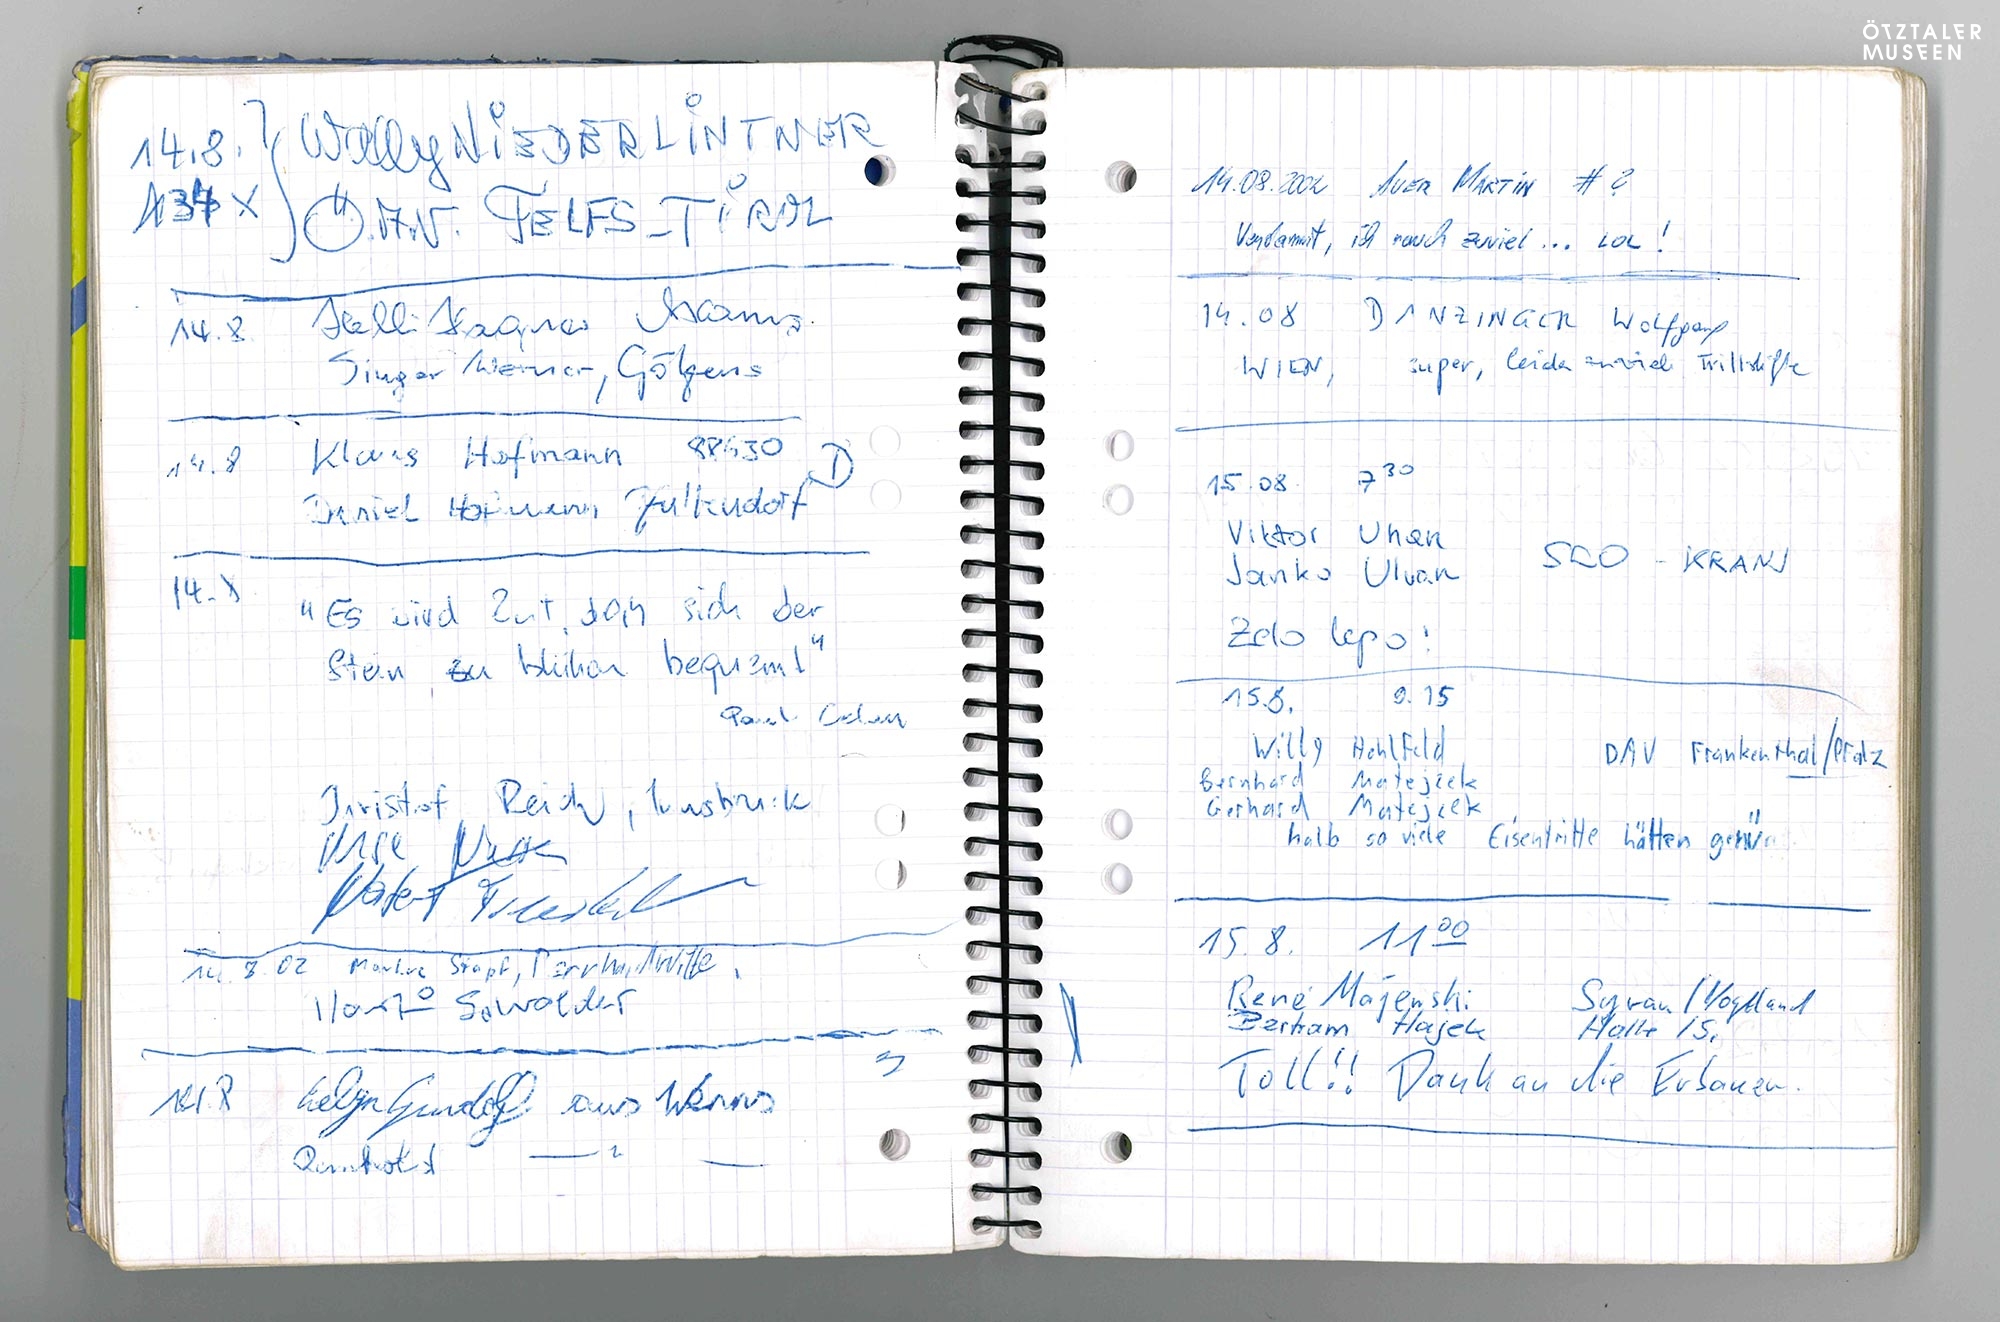 14.8. Willy NIEDERLINTNER
134 X Ö.A.V. TELFS-TIROL
14.8.
Singer Werner, Götzens
14.8 Klaus Hofmann 88630
Daniel Hofmann Pfullendorf D
14.8
"Es wird Zeit, daß sich der
Stein zu blühen bequemt"
Paul Celan
Christof Reich, Innsbruck
14.8.02 Markus Stapf,
14.8 aus Wenns
14.08.2002 AUER MARTIN # 2
Verdammt, ich rauch zuviel... LOL!
14.08 DANZINGER Wolfgang
WIEN, super, leida zuviele Trittstifte
15.08 7 30
Viktor Uhan
Janko Uhan SLO - KRANJ
Zelo lepo!
15.8. 9.15
Willy Hohlfeld DAV Frankenthal/Pfalz
Bernhard Matejcek
Gerhard Matejcek
halb so viele Eisentritte hätten
15.8. 11 00
René Majewski Syrau/Vogtland
Bertram Hajek Halle/S.
Toll!! Dank an die Erbauer.
ÖTZTALER
MUSEEN